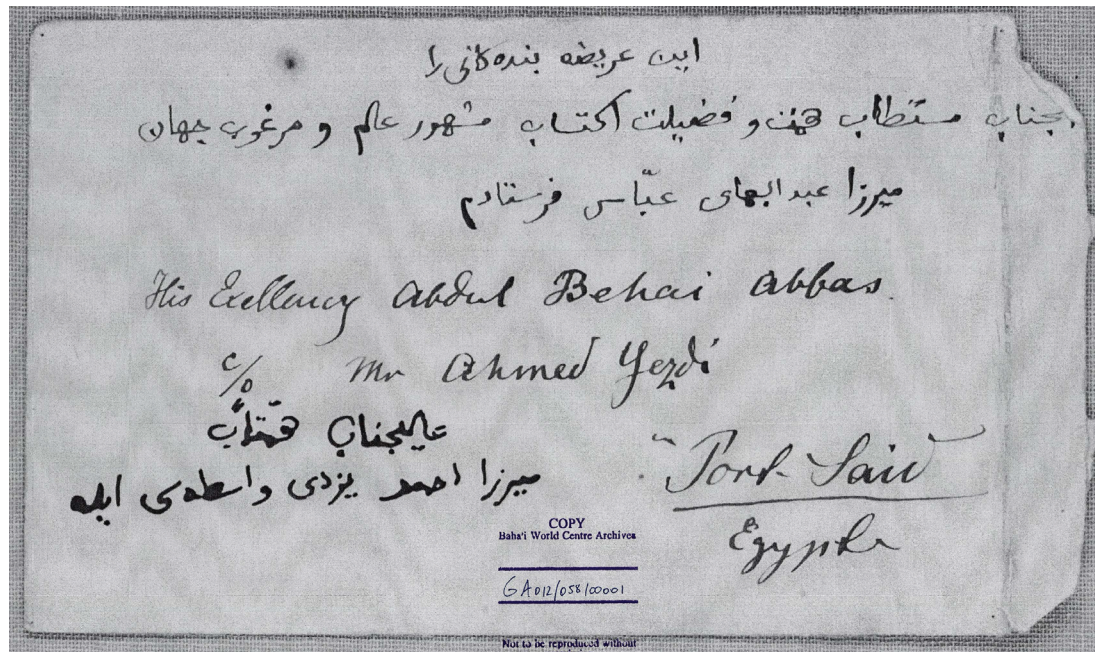 این عریضه بنده‌کانی را
بجناب مستطاب همت و فضیلت اکتساب مشهور عالم و مرغوب جهان
میرزا عبدالبهای عبّاس فرستادم
His Exellency Abdul Behai Abbas.
c/o Mr Ahmed Yezdi
عالیجناب همّتمآب
میرزا احمد یزدی واسطه‌سی ایله
Port-Said
Egypte
COPY
Baha'i World Centre Archives
GA012/058/00001
Not to be reproduced without